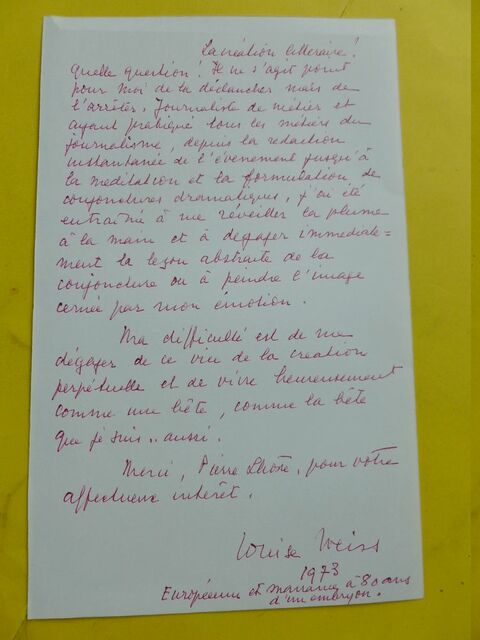 La création littéraire !
Quelle question ! Il ne s'agit point
pour moi de la déclancher mais de
l'arrêter. Journaliste de métier et
ayant pratiqué tous les métiers du
journalisme, depuis la rédaction
instantanée de l'évènement jusqu'à
la méditation et la formulation de
conjonctures dramatiques, j'ai été
entraîné à me réveiller la plume
à la main et à dégager immédiate=
ment la leçon abstraite de la
conjoncture ou à peindre l'image
cernée par mon émotion.
Ma difficulté est de me
dégager de ce vice de la création
perpétuelle et de vivre heureusement
comme une bête, comme la bête
que je suis.. aussi.
Merci, Pierre Lhoste, pour votre
affectueux intérêt.
Louise Weiss
1973
Européenne et marraine à 80 ans
d'un embryon.